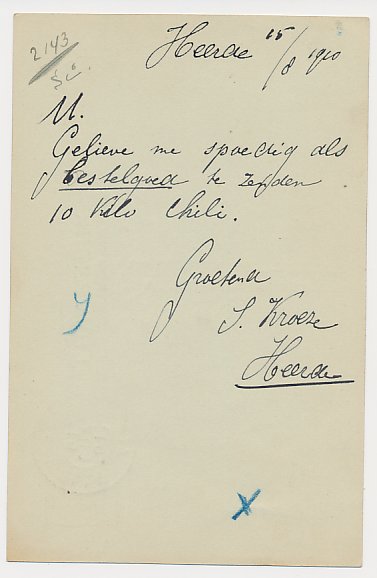 2143
Heerde 15/8 1910
M.
Gelieve me spoedig als
bestelgoed te zenden
10 Kilo Chili.
Groetend
S. Kroeze
Heerde